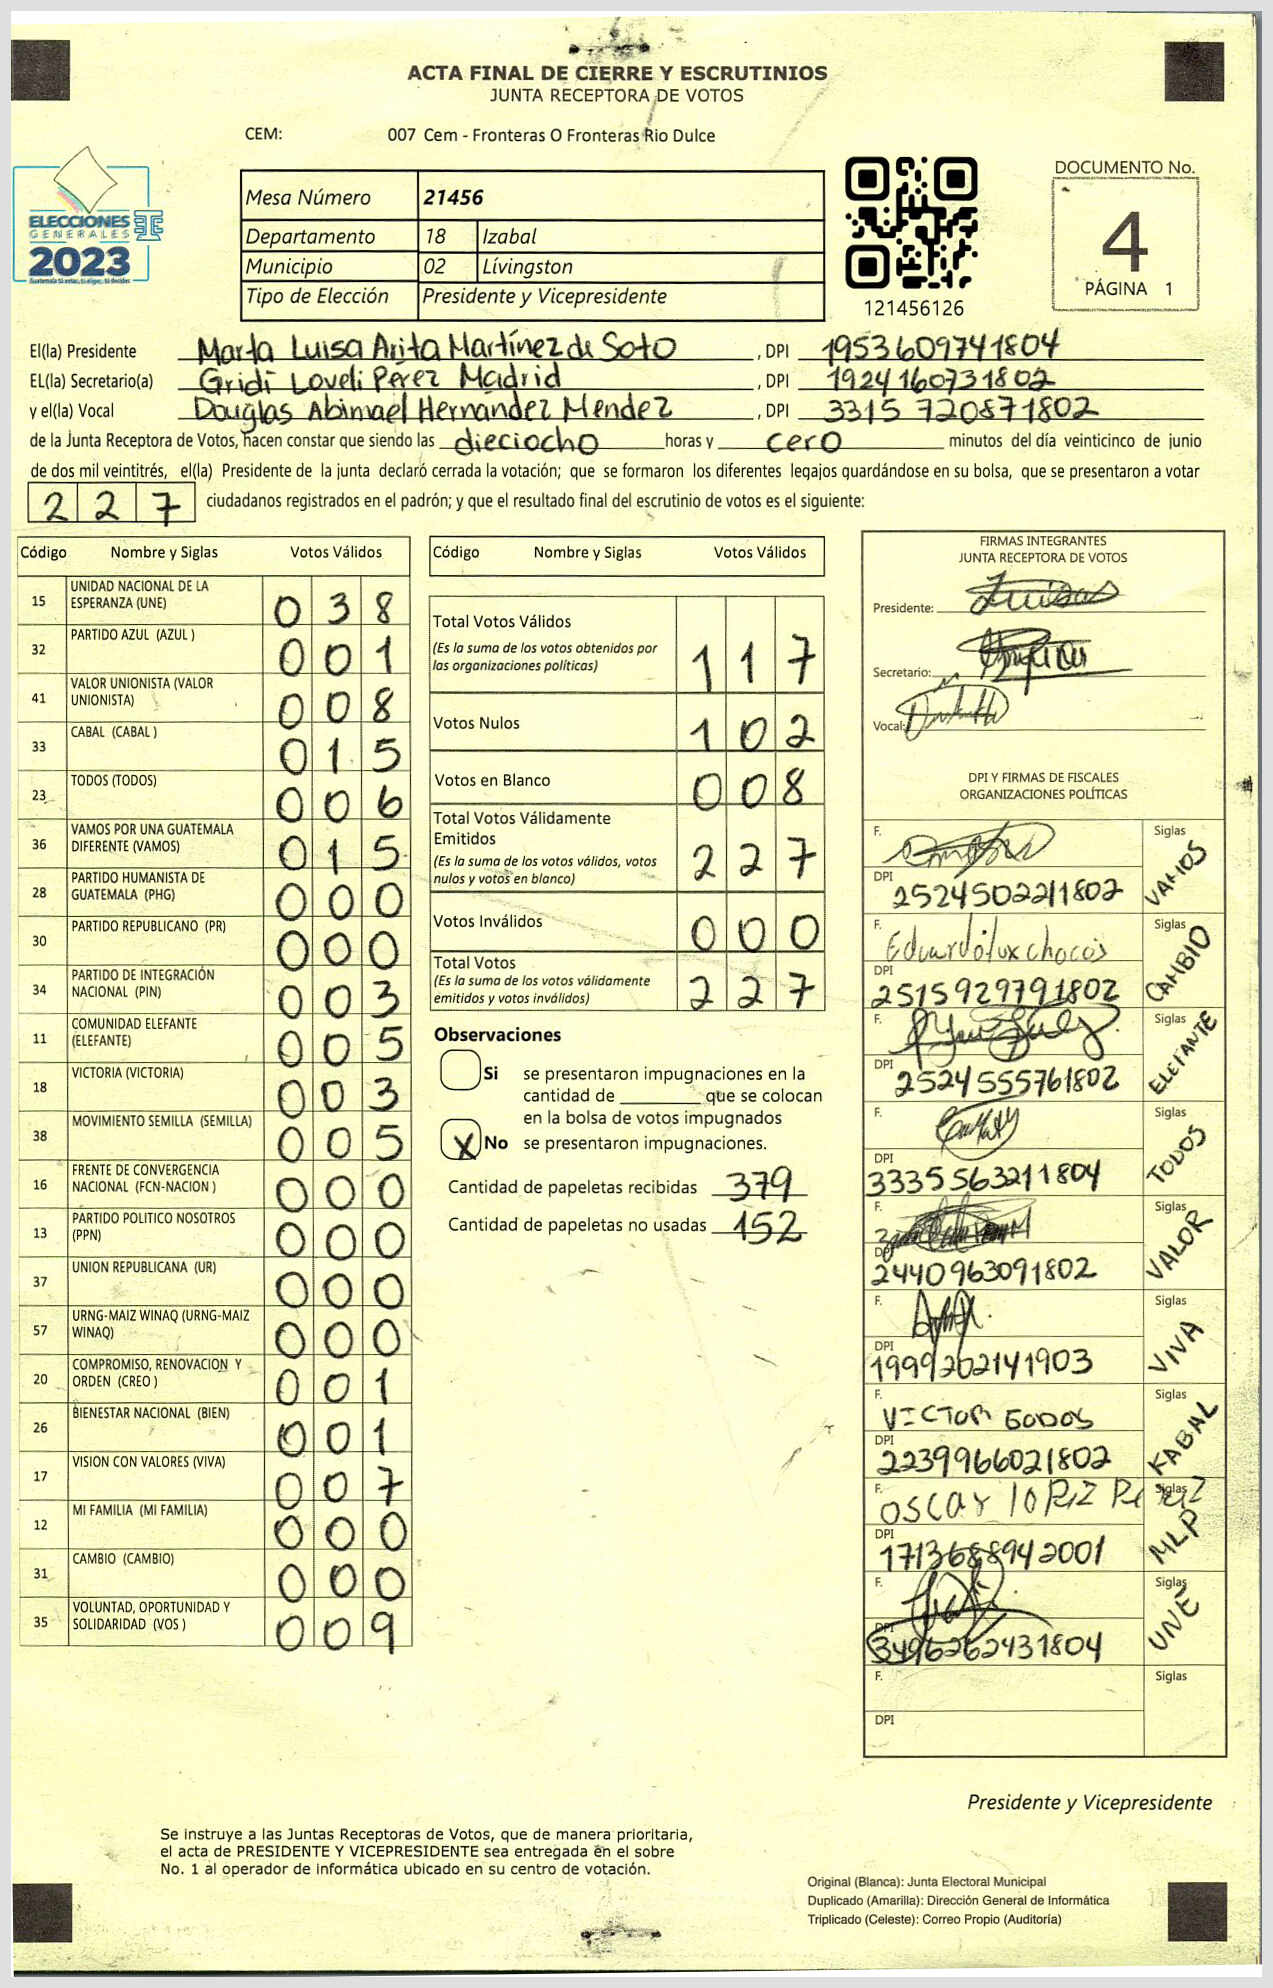 ACTA FINAL DE CIERRE Y ESCRUTINIOS
JUNTA RECEPTORA DE VOTOS
CEM: 007 Cem - Fronteras O Fronteras Rio Dulce
ELECCIONES
GENERALES
2023
Mesa Número 21456
Departamento 18 Izabal
Municipio 02 Lívingston
Tipo de Elección Presidente y Vicepresidente
121456126
DOCUMENTO No.
4
PÁGINA 1
El(la) Presidente Marta Luisa Arita Martínez de Soto , DPI 1953609741804
EL(la) Secretario(a) Gridi Loveli Pérez Madrid , DPI 1924160731802
y el(la) Vocal Douglas Abimael Hernandez Mendez , DPI 3315 720871802
de la Junta Receptora de Votos, hacen constar que siendo las dieciocho horas y cero minutos del día veinticinco de junio
de dos mil veintitrés, el(la) Presidente de la junta declaró cerrada la votación; que se formaron los diferentes legajos guardándose en su bolsa, que se presentaron a votar
227 ciudadanos registrados en el padrón; y que el resultado final del escrutinio de votos es el siguiente:
Código Nombre y Siglas Votos Válidos
15 UNIDAD NACIONAL DE LA ESPERANZA (UNE) 038
32 PARTIDO AZUL (AZUL ) 001
41 VALOR UNIONISTA (VALOR UNIONISTA) 008
33 CABAL (CABAL ) 015
23 TODOS (TODOS) 006
36 VAMOS POR UNA GUATEMALA DIFERENTE (VAMOS) 015
28 PARTIDO HUMANISTA DE GUATEMALA (PHG) 000
30 PARTIDO REPUBLICANO (PR) 000
34 PARTIDO DE INTEGRACIÓN NACIONAL (PIN) 003
11 COMUNIDAD ELEFANTE (ELEFANTE) 005
18 VICTORIA (VICTORIA) 003
38 MOVIMIENTO SEMILLA (SEMILLA) 005
16 FRENTE DE CONVERGENCIA NACIONAL (FCN-NACION ) 000
13 PARTIDO POLITICO NOSOTROS (PPN) 000
37 UNION REPUBLICANA (UR) 000
57 URNG-MAIZ WINAQ (URNG-MAIZ WINAQ) 000
20 COMPROMISO, RENOVACION Y ORDEN (CREO ) 001
26 BIENESTAR NACIONAL (BIEN) 001
17 VISION CON VALORES (VIVA) 007
12 MI FAMILIA (MI FAMILIA) 000
31 CAMBIO (CAMBIO) 000
35 VOLUNTAD, OPORTUNIDAD Y SOLIDARIDAD (VOS ) 009
Código Nombre y Siglas Votos Válidos
Total Votos Válidos
(Es la suma de los votos obtenidos por las organizaciones políticas) 117
Votos Nulos 102
Votos en Blanco 008
Total Votos Válidamente Emitidos
(Es la suma de los votos válidos, votos nulos y votos en blanco) 227
Votos Inválidos 000
Total Votos
(Es la suma de los votos válidamente emitidos y votos inválidos) 227
Observaciones
Si se presentaron impugnaciones en la
cantidad de ________ que se colocan
en la bolsa de votos impugnados
X No se presentaron impugnaciones.
Cantidad de papeletas recibidas 379
Cantidad de papeletas no usadas 152
FIRMAS INTEGRANTES
JUNTA RECEPTORA DE VOTOS
Presidente:
Secretario:
Vocal:
DPI Y FIRMAS DE FISCALES
ORGANIZACIONES POLÍTICAS
F. Siglas VAMOS
DPI 2524502211802
F. Siglas CAMBIO
DPI 2515929791802
F. Siglas ELEFANTE
DPI 2524555761802
F. Siglas TODOS
DPI 3335563211804
F. Siglas VALOR
DPI 2440963091802
F. Siglas VIVA
DPI 1999202141903
F. VICTOR GODOS Siglas KABAL
DPI 2239966021802
F. OSCAR Siglas MLP
DPI 1713688942001
F. Siglas UNE
DPI 3496262431804
F. Siglas
DPI
Presidente y Vicepresidente
Se instruye a las Juntas Receptoras de Votos, que de manera prioritaria,
el acta de PRESIDENTE Y VICEPRESIDENTE sea entregada en el sobre
No. 1 al operador de informática ubicado en su centro de votación.
Original (Blanca): Junta Electoral Municipal
Duplicado (Amarilla): Dirección General de Informática
Triplicado (Celeste): Correo Propio (Auditoría)